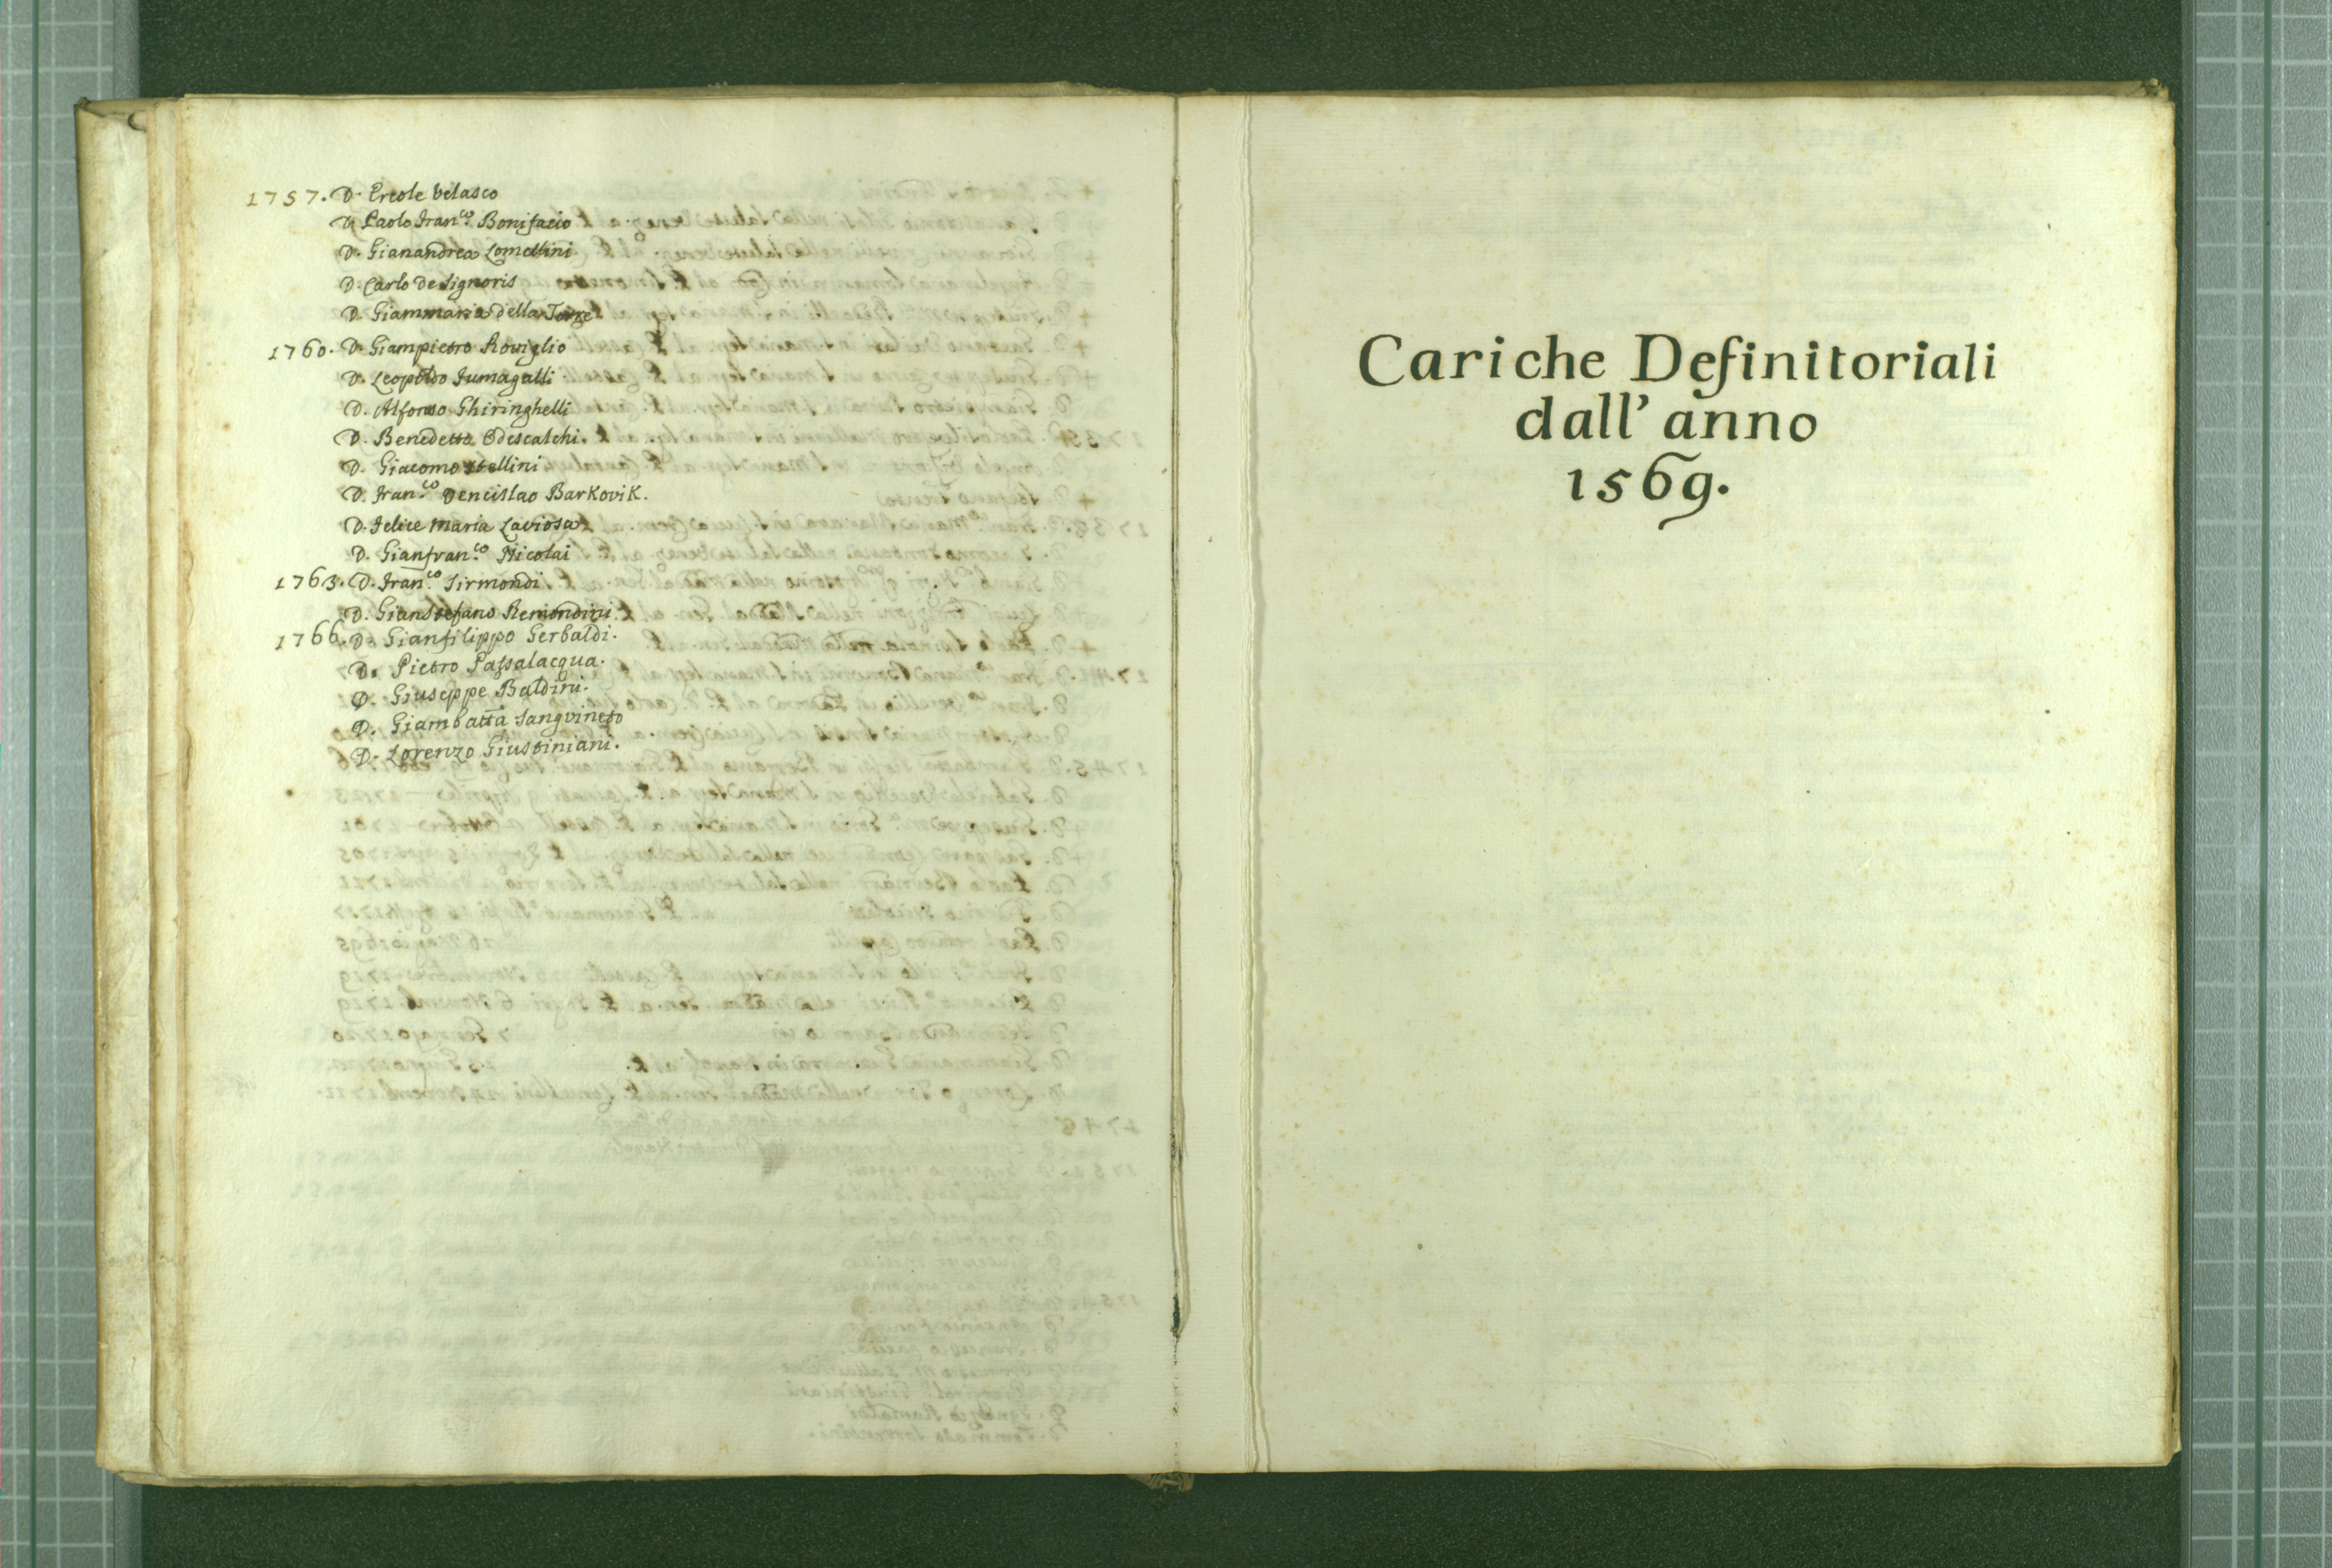 1757. D. Ercole Velasco
D. Paolo Fran.co Bonifacio
D. Gianandrea Lomellini
D. Carlo de Signoris
D. Giammaria della Torre
1760. D. Giampietro Roviglio
D. Leopoldo Fumagalli
D. Alfonso Ghiringhelli
D. Benedetto Odescalchi.
D. Giacomo Stellini
D. Fran.co Vencislao Barkovik.
D. Felice Maria Laviosa
D. Gianfran.co Nicolai
1763. D. Fran.co Sirmondi
D. Gianstefano Remondini
1766. D. Gianfilippo Gerbaldi.
D. Pietro Passalacqua.
D. Giuseppe Baldini.
D. Giambatta Sanguineto
D. Lorenzo Giustiniani.
Cariche Definitoriali
dall' anno
1569.